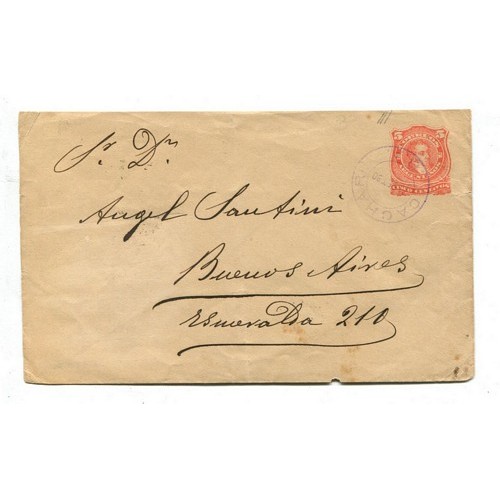 Sr. Dn.
Angel Santini
Buenos Aires
Esmeralda 210
5 5
CINCO CENTAVOS